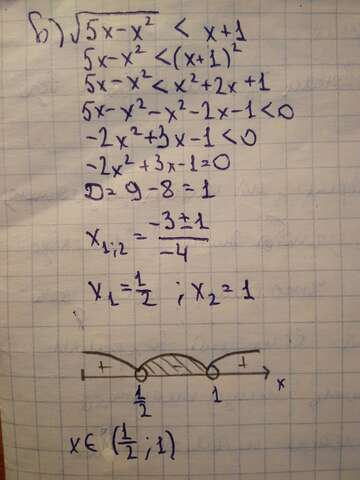 б) √(5x-x²) < x+1
5x-x² <(x+1)²
5x-x² < x²+2x+1
5x-x²-x²-2x-1<0
-2x²+3x-1<0
-2x²+3x-1=0
D=9-8=1
x₁;₂ = (-3±1)/(-4)
x₁=1/2 ; x₂=1
+ - + x
1/2 1
x∈(1/2;1)